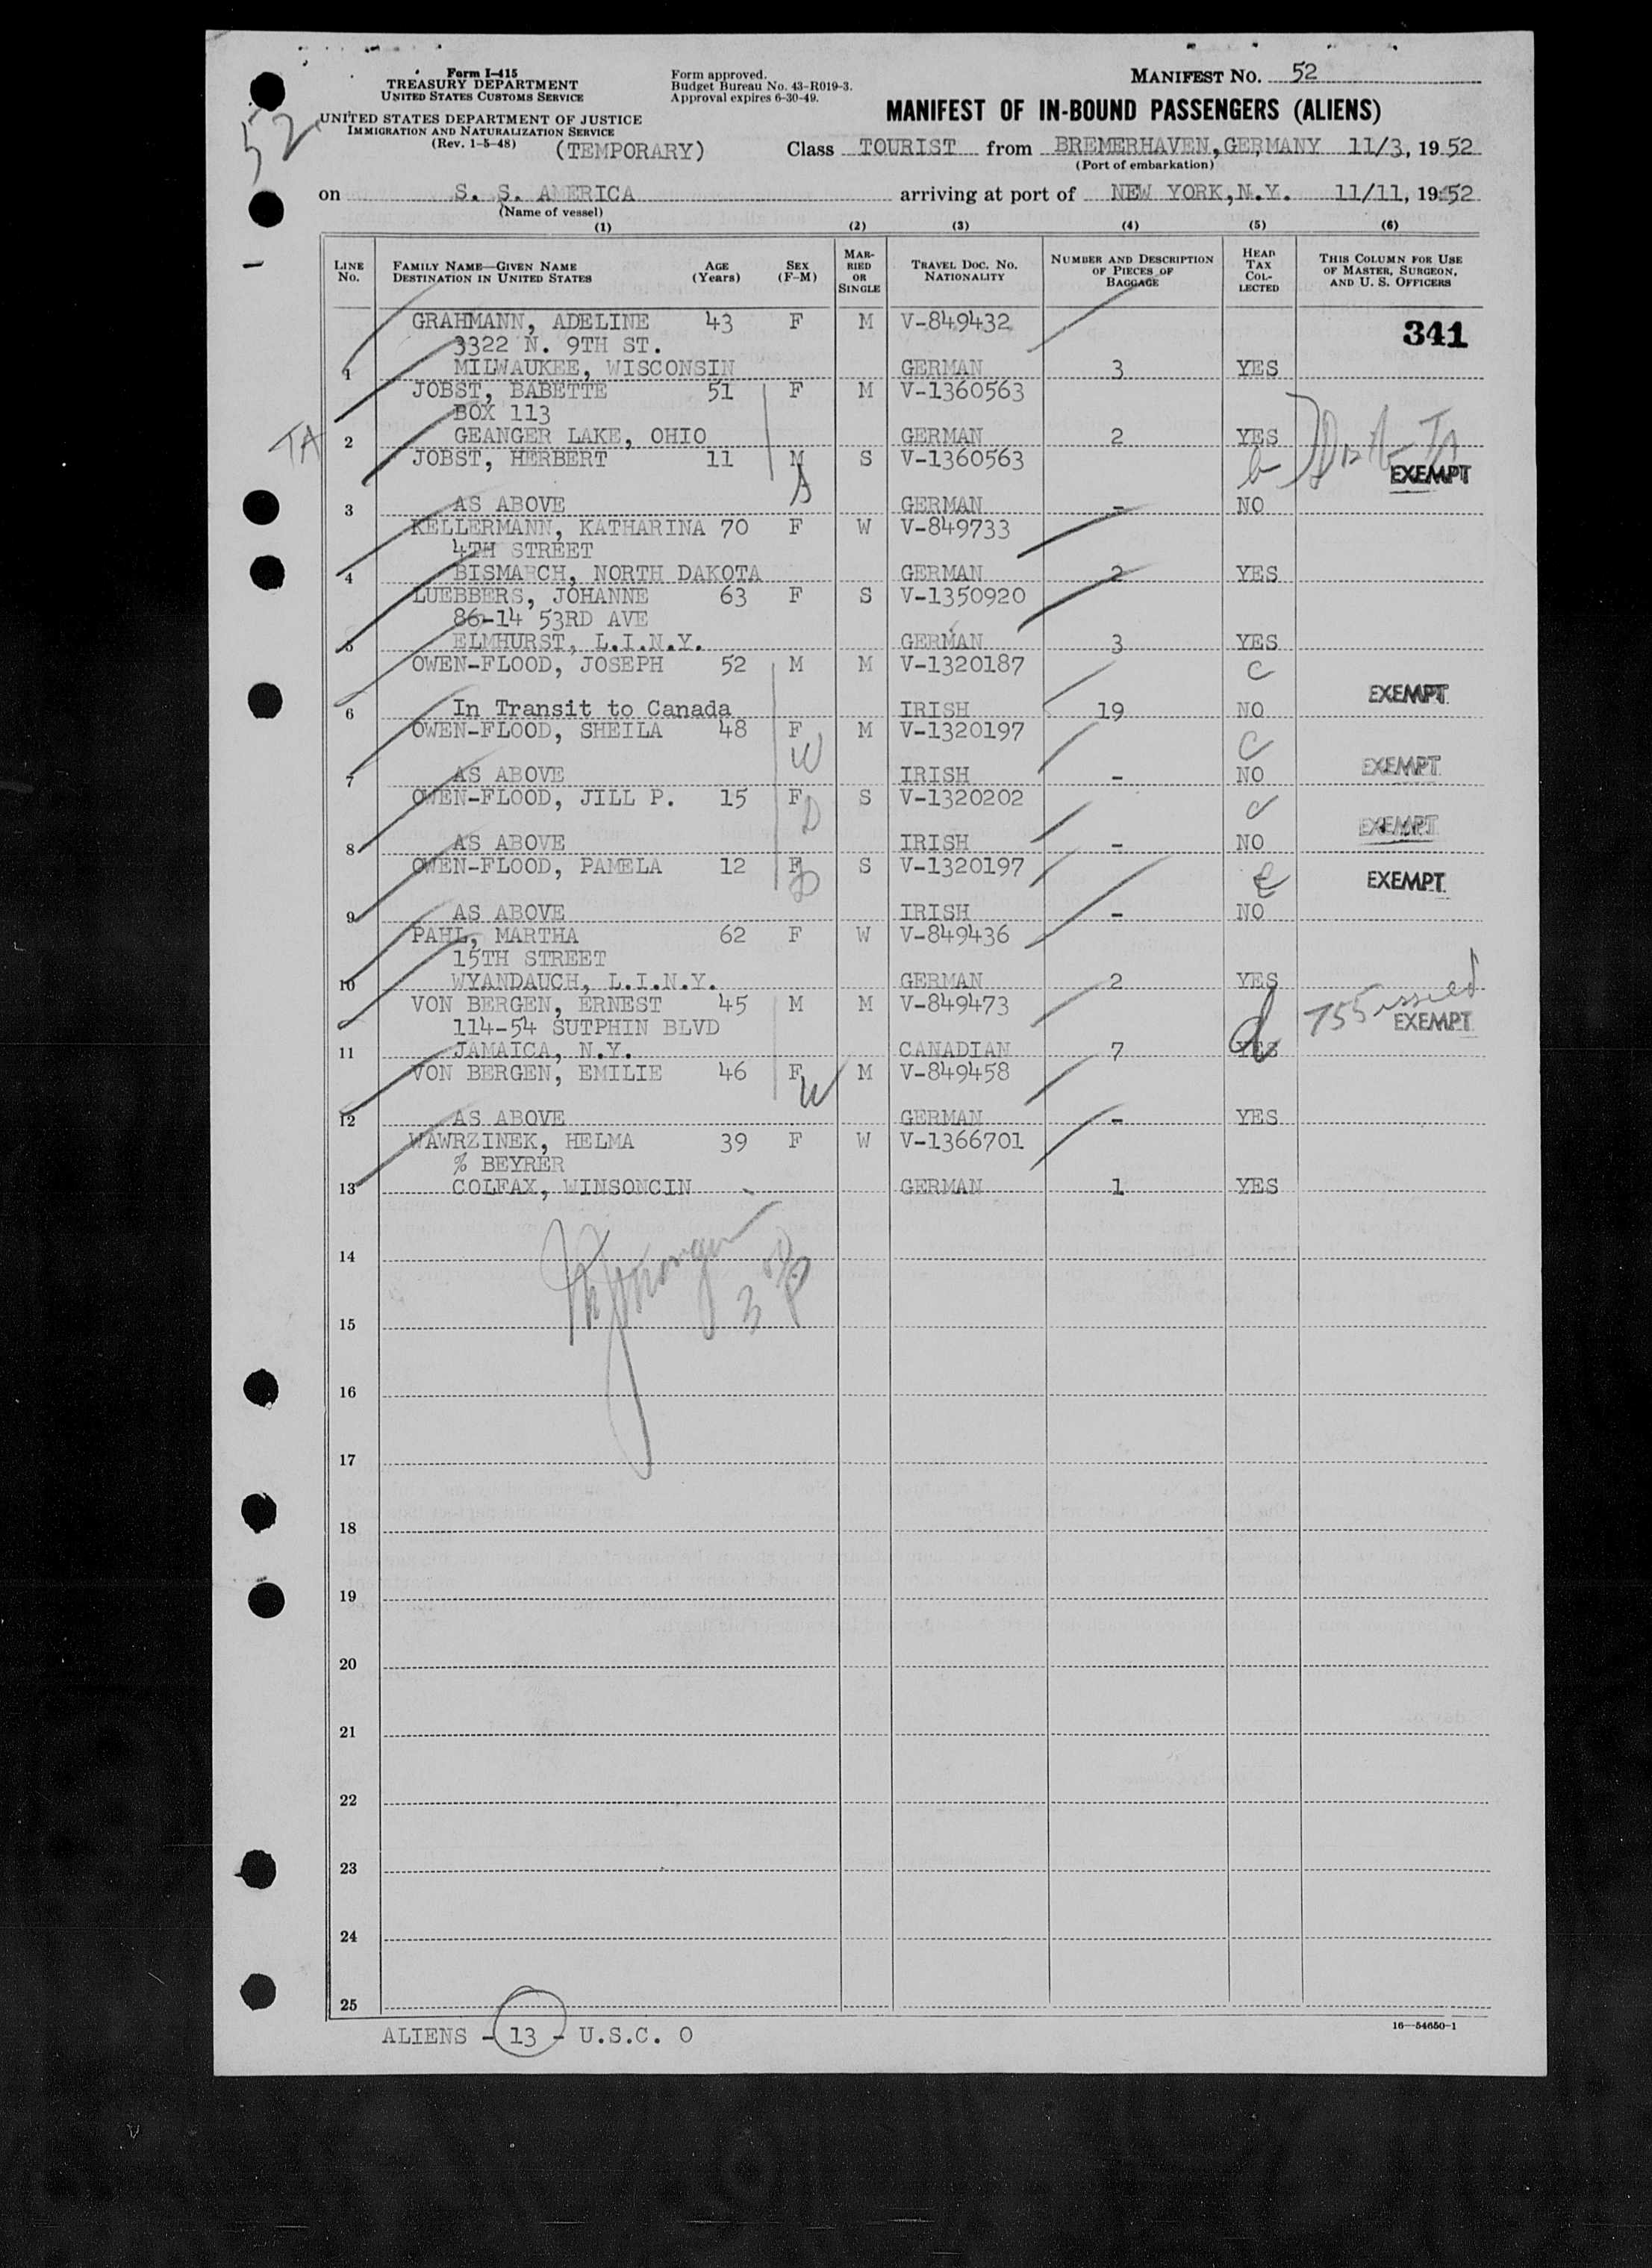 Form I-415
TREASURY DEPARTMENT
UNITED STATES CUSTOMS SERVICE
UNITED STATES DEPARTMENT OF JUSTICE
IMMIGRATION AND NATURALIZATION SERVICE
(Rev. 1-5-48) (TEMPORARY)
Form approved.
Budget Bureau No. 43-R019-3.
Approval expires 6-30-49.
52
MANIFEST NO. 52
MANIFEST OF IN-BOUND PASSENGERS (ALIENS)
Class TOURIST from BREMERHAVEN, GERMANY 11/3, 1952
(Port of embarkation)
on S. S. AMERICA arriving at port of NEW YORK, N.Y. 11/11, 1952
(Name of vessel)
(1) (2) (3) (4) (5) (6)
LINE NO. FAMILY NAME—GIVEN NAME DESTINATION IN UNITED STATES AGE (Years) SEX (F-M) MARRIED OR SINGLE TRAVEL DOC. NO. NATIONALITY NUMBER AND DESCRIPTION OF PIECES OF BAGGAGE HEAD TAX COLLECTED THIS COLUMN FOR USE OF MASTER, SURGEON, AND U. S. OFFICERS
GRAHMANN, ADELINE 43 F M V-849432 341
3322 N. 9TH ST.
1 MILWAUKEE, WISCONSIN GERMAN 3 YES
JOBST, BABETTE 51 F M V-1360563
BOX 113
TA 2 GEANGER LAKE, OHIO GERMAN 2 YES
JOBST, HERBERT 11 M S V-1360563 b EXEMPT
3 AS ABOVE GERMAN - NO
KELLERMANN, KATHARINA 70 F W V-849733
4TH STREET
4 BISMARCH, NORTH DAKOTA GERMAN 2 YES
LUEBBERS, JOHANNE 63 F S V-1350920
86-14 53RD AVE
5 ELMHURST, L.I.N.Y. GERMAN 3 YES
OWEN-FLOOD, JOSEPH 52 M M V-1320187 C EXEMPT
6 In Transit to Canada IRISH 19 NO
OWEN-FLOOD, SHEILA 48 F W M V-1320197 C EXEMPT
7 AS ABOVE IRISH - NO
OWEN-FLOOD, JILL P. 15 F D S V-1320202 C EXEMPT
8 AS ABOVE IRISH - NO
OWEN-FLOOD, PAMELA 12 F D S V-1320197 EXEMPT
9 AS ABOVE IRISH - NO
PAHL, MARTHA 62 F W V-849436
15TH STREET
10 WYANDAUCH, L.I.N.Y. GERMAN 2 YES
VON BERGEN, ERNEST 45 M M V-849473 d 755 issued EXEMPT
114-54 SUTPHIN BLVD
11 JAMAICA, N.Y. CANADIAN 7 YES
VON BERGEN, EMILIE 46 F W M V-849458
12 AS ABOVE GERMAN - YES
WAWRZINEK, HELMA 39 F W V-1366701
% BEYRER
13 COLFAX, WINSONCIN GERMAN 1 YES
14
15
16
17
18
19
20
21
22
23
24
25
ALIENS - 13 - U.S.C. 0
16—54650-1